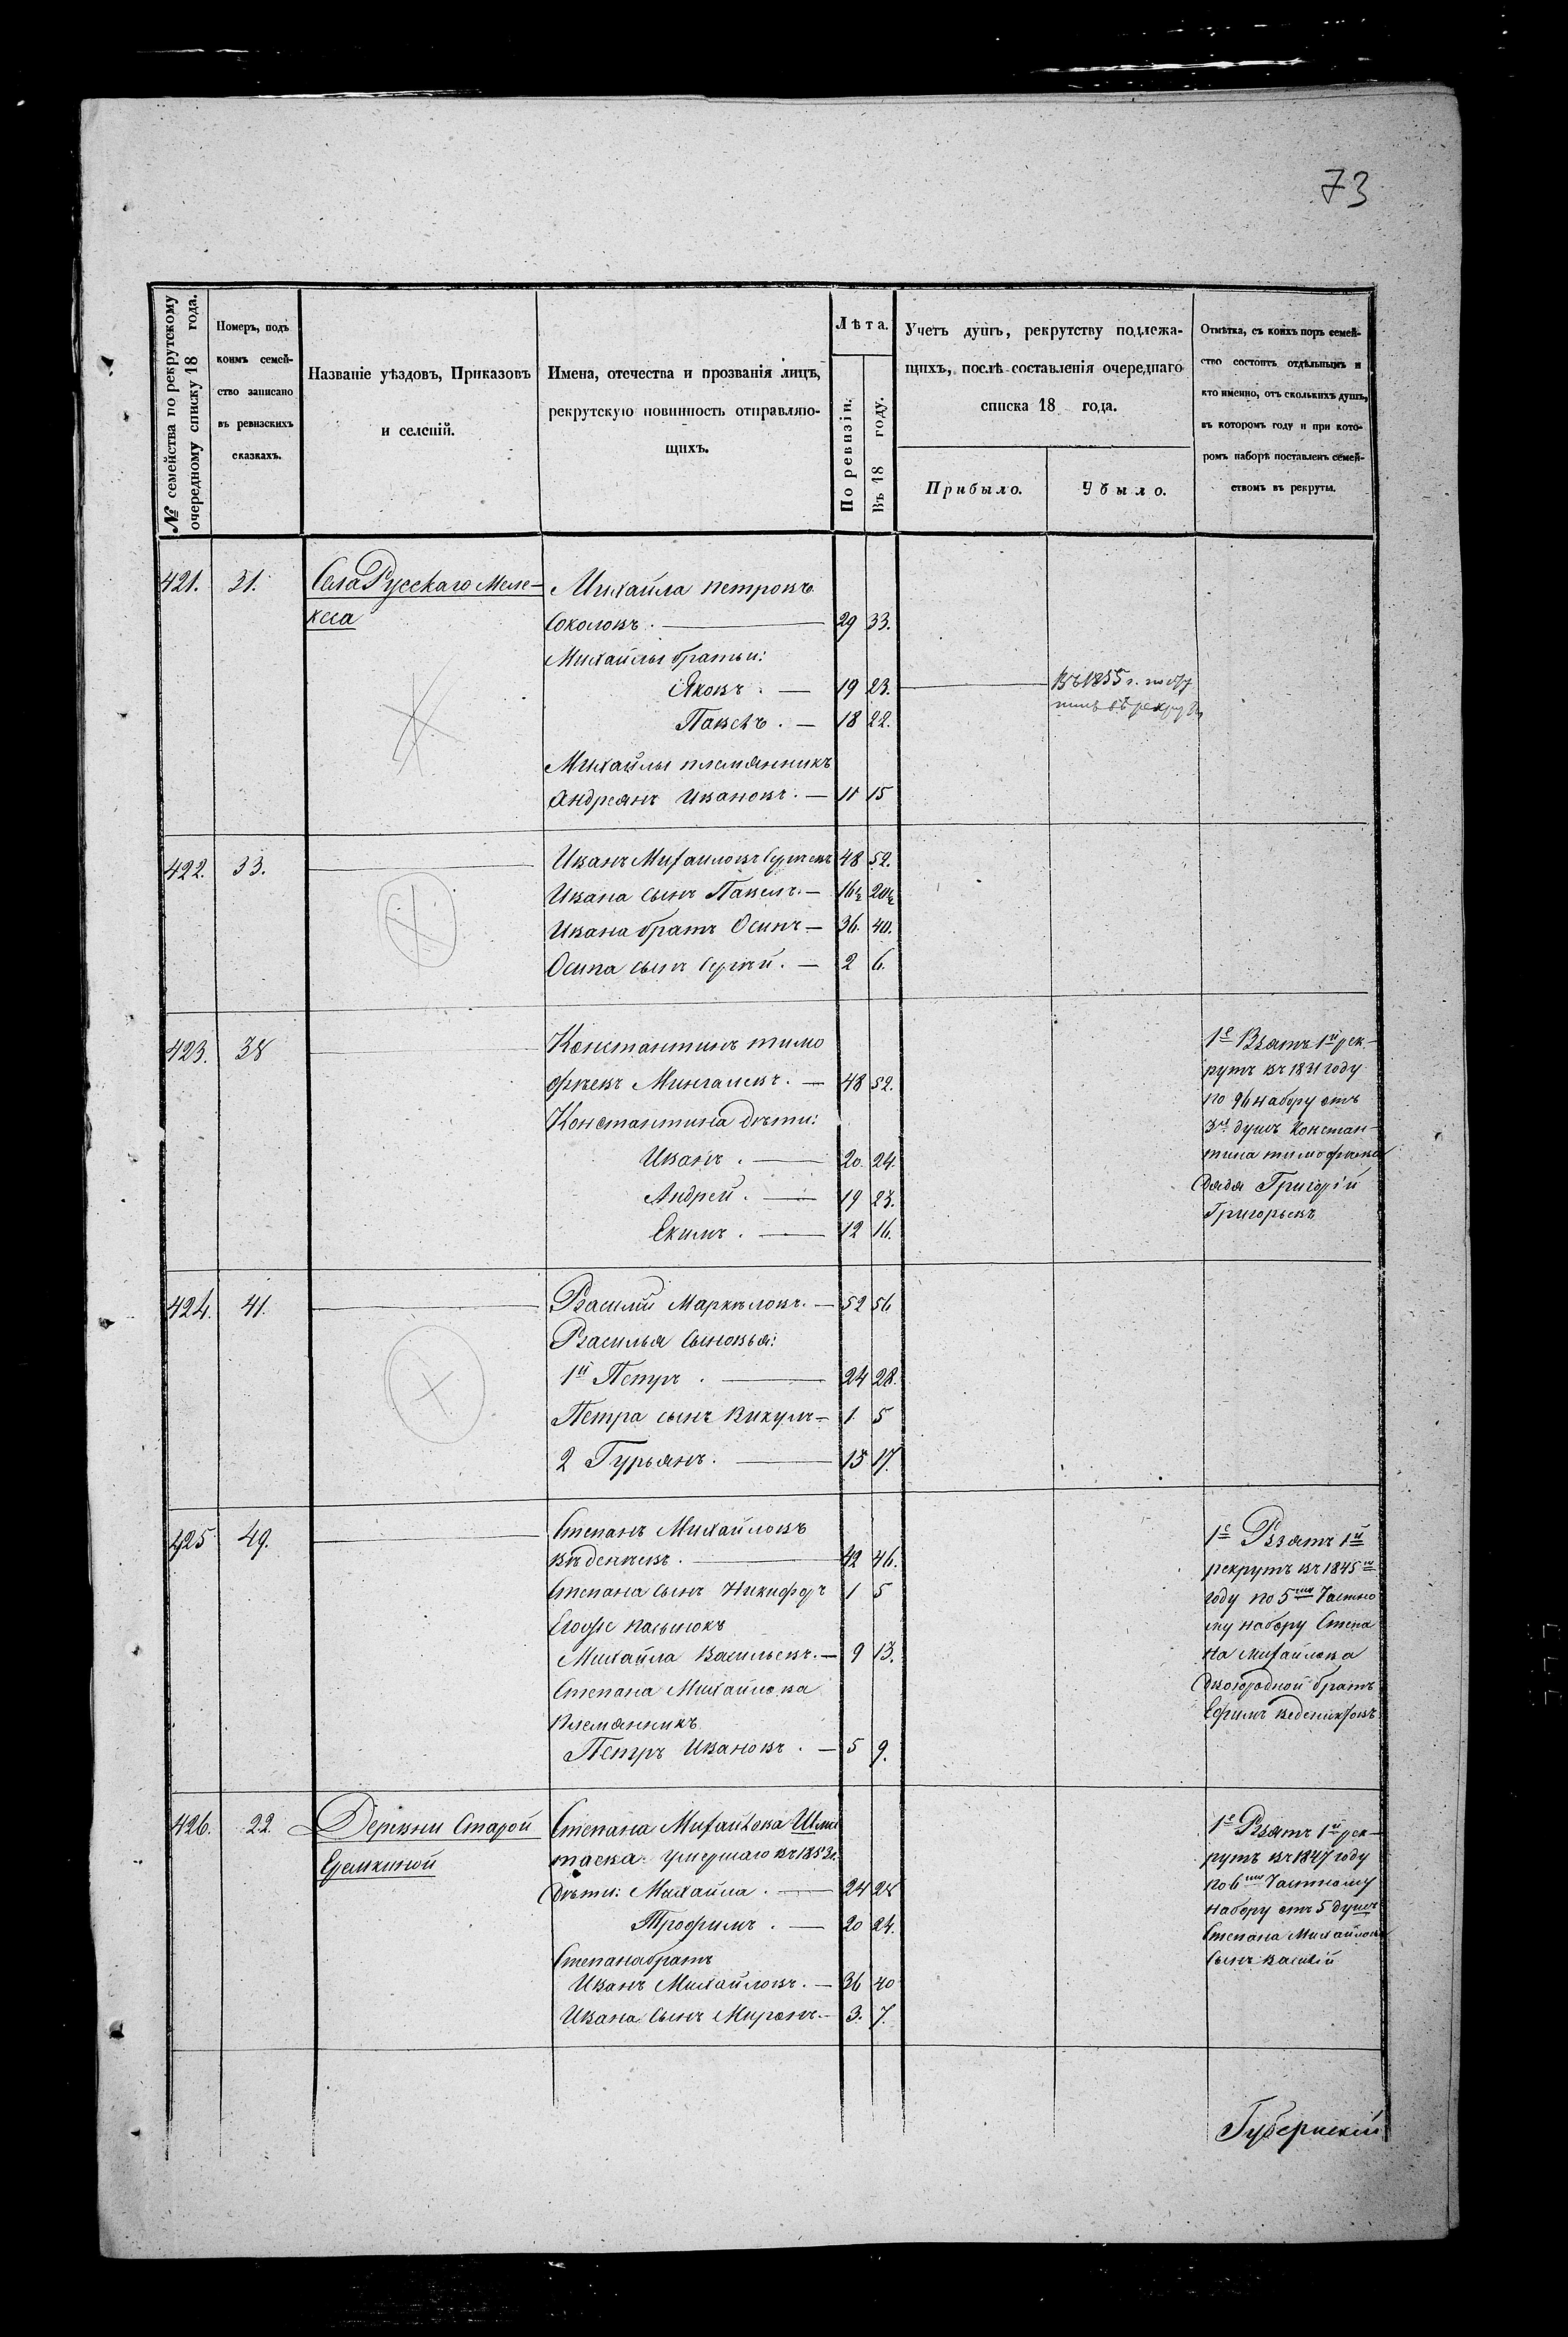 73
№ семейства по рекрутскому
очередному списку 18 года.
Номеръ, подъ
коимъ семей-
ство записано
въ ревизскихъ
сказкахъ.
Названіе уѣздовъ, Приказовъ
и селеній.
Имена, отечества и прозванія лицъ,
рекрутскую повинность отправляю-
щихъ.
Лѣта.
По ревизіи.
Въ 18 году.
Учетъ душъ, рекрутству подлежа-
щихъ, послѣ составленія очереднаго
списка 18 года.
Прибыло.
Убыло.
Отмѣтка, съ коихъ поръ семей-
ство состоитъ отдѣльнымъ и
кто именно, отъ сколькихъ душъ,
въ которомъ году и при кото-
ромъ наборѣ поставленъ семей-
ствомъ въ рекруты.
421. 31. Села Русскаго Меле-
кеса
Михайла петровъ
Соколовъ. — 29 33.
Михайлы братьи:
Яковъ. — 19 23.
Въ 1855 г. посту
пилъ въ рекруты
Павелъ. — 18 22.
Михайлы племянникъ
Андреянъ Ивановъ. — 11 15
422. 33. Иванъ Михаиловъ 48 52.
Ивана сынъ Павелъ. — 16½ 20½
Ивана братъ Осипъ — 36. 40.
Осипа сынъ Сергѣй. — 2 6.
423. 38 Константинъ тимо
фѣевъ Мингалевъ. — 48 52.
Константина дѣти:
Иванъ. — 20. 24.
Андрей. — 19 23.
Екимъ. — 12 16.
1е Взятъ 1й рек-
рутъ въ 1831 году
по 96 набору отъ
3хъ душъ Констан-
тина тимофѣева
дядя Григорій
Григорьевъ
424. 41. Василій Маркѣловъ. — 52 56
Василья сыновья:
1й Петръ. — 24 28.
Петра сынъ Викулъ — 1. 5
2 Гурьянъ. — 13 17.
425 49. Степанъ Михайловъ
— 42 46.
Степана сынъ Никифоръ 1 5
Егоже пасынокъ
Михайла Васильевъ. — 9 13.
Степана Михайлова
племянникъ
Петръ Ивановъ. — 5 9.
1е Взятъ 1й
рекрутъ въ 1845м
году по 5му Частно
му набору Степа
на Михайлова
двоюродной братъ
Ефимъ
426. 22. Деревни Старой
Еремкиной
Степана Михайлова
умершаго въ 1853г.
дѣти: Михайла. — 24 28
Трофимъ. — 20 24.
Степана братъ
Иванъ Михайловъ. — 36 40
Ивана сынъ Миронъ. — 3. 7.
1е Взятъ 1й рек-
рутъ въ 1847 году
по 6му Частному
набору отъ 5 душъ
Степана Михайлова
сынъ василій
Губернскій